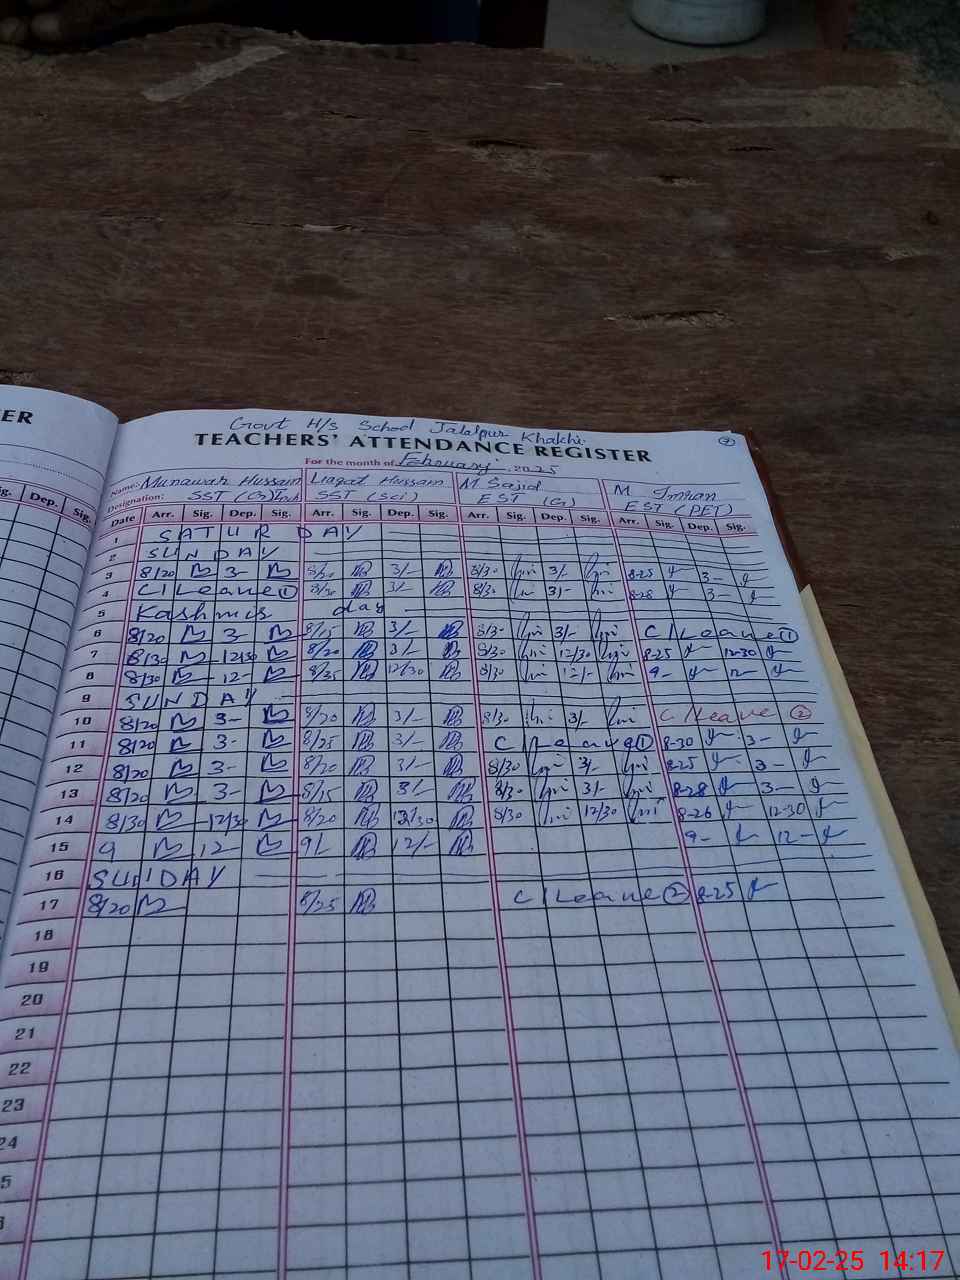 Govt H/s School Jalalpur Khakhi.
ER
TEACHERS' ATTENDANCE REGISTER
For the month of February, 2025
Name: Munawar Hussain Liaqat Hussain M Sajid M Imran
Designation: SST (G) SST (Sci) EST (G) EST (PET)
ig. Dep. Sig. Date Arr. Sig. Dep. Sig. Arr. Sig. Dep. Sig. Arr. Sig. Dep. Sig. Arr. Sig. Dep. Sig.
1 SATURDAY
2 SUNDAY
3 8/20 3- 8/20 3/- 8/30 3/- 8-25 3-
4 C/Leave ① 8/30 3/- 8/30 3/- 8-28 3-
5 Kashmir day
6 8/20 3- 8/15 3/- 8/30 3/- C/Leave ①
7 8/30 12/30 8/20 3/- 8/30 12/30 8-25 12-30
8 8/30 12- 8/25 12/30 8/30 12/- 9- 12-
9 SUNDAY
10 8/20 3- 8/20 3/- 8/30 3/- C/Leave ②
11 8/20 3- 8/25 3/- C/Leave ① 8-30 3-
12 8/20 3- 8/20 3/- 8/30 3/- 8-25 3-
13 8/20 3- 8/15 3/- 8/30 3/- 8-28 3-
14 8/30 12/30 8/20 12/30 8/30 12/30 8-26 12-30
15 9 12- 9/- 12/- 9- 12-
16 SUNDAY
17 8/20 8/25 C/Leave ② 8-25
18
19
20
21
22
23
24
5
17-02-25 14:17